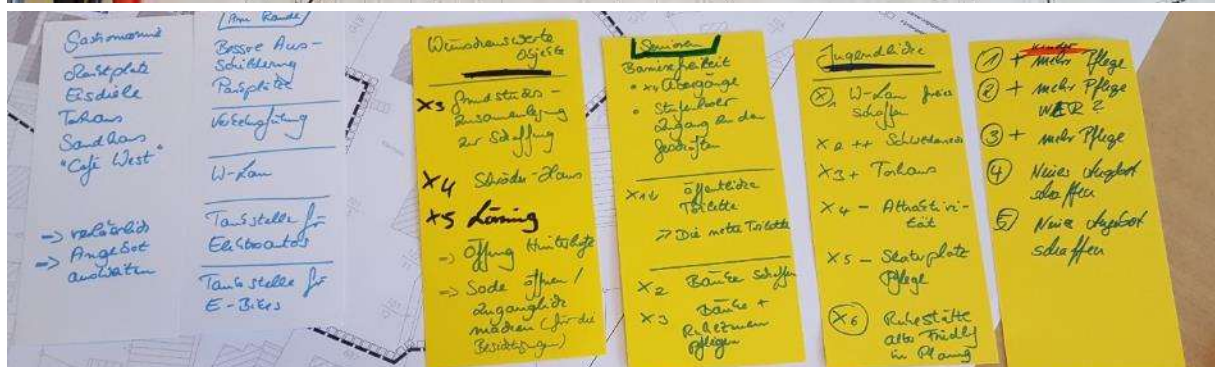 Gastronomie
Eisdiele
Torhaus
Sandhaus
"Café West"
-> Angebot
ausweiten
Am Rande
Bessre Aus-
Schilderung
Parkplätze
W-Lan
Tankstelle für
Elektroautos
Tankstelle für
E-Bikes
Wünschenswerte
Objekte
X3 Grundstücks-
zusammenlegung
zur Schaffung
X4 Schröder-Haus
X5
-> Öffnung Hinterhöfe
-> Sode öffnen /
zugänglich
machen (für die
Besichtigungen)
Senioren
Barrierefreiheit
Übergänge
• Stufenloser
Zugang zu den
Geschäften
öffentliche
Toilette
-> Die nette Toilette
X2 Bänke schaffen
X3 Bänke +
Ruhezonen
pflegen
Jugendliche
X1 W-Lan freies
schaffen
X2 ++
X3 + Torhaus
X4 - Attraktivi-
tät
X5 - Skaterplatz
Pflege
X6 Ruhestätte
alter Friedhof
in Planung
Kinder
1 + mehr Pflege
2 + mehr Pflege
WER?
3 + mehr Pflege
4 Neues Angebot
schaffen
5 Neues Angebot
schaffen